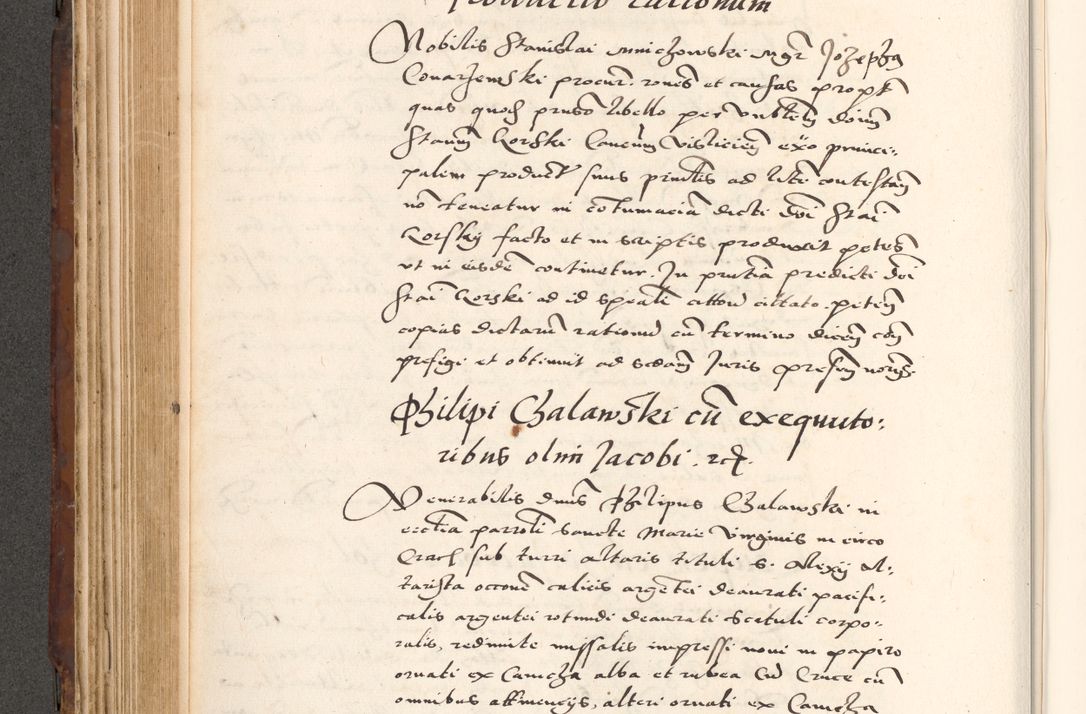 productio rationum
Nobilis Stanislai Mnichowski Mgr Jozephg
Conarzewski procur. rones et causas propt
quas quod pnso libello per vnblem doim
Stanm Gorski Cancum Visliciem exo princi:
palem product suus pimtis ad lite contestam
no teneatur in cotumacia dicti doi Stai
Gorskij facto et in scriptis produxit petes
vt in eisde continetur. In pntia predicti doi
Stai Gorski ad id speali citatto. petem
copias dictarum rationu cu termino dicem com
prefigi et obtinuit ad scdam Juris presem
Philipi Chalawski cu exequuto:
ribus olim Jacobi. rcz.
Venerabilis dnus Philipus Chalawski in
ecctia parroli Sancte Marie Virginis in circo
Crac sub turri altaris tituli S. Alexij Al:
tarista occone calicis argetei deaurati pacifi:
calis argentei rotundi deaurati Scituli corpo:
ralis, redimite missalis impressi noui in papiro
ornati ex Camcha alba et rubea Cu Cruce cu
omnibus attinencijs, alteri ornati ex Camcha